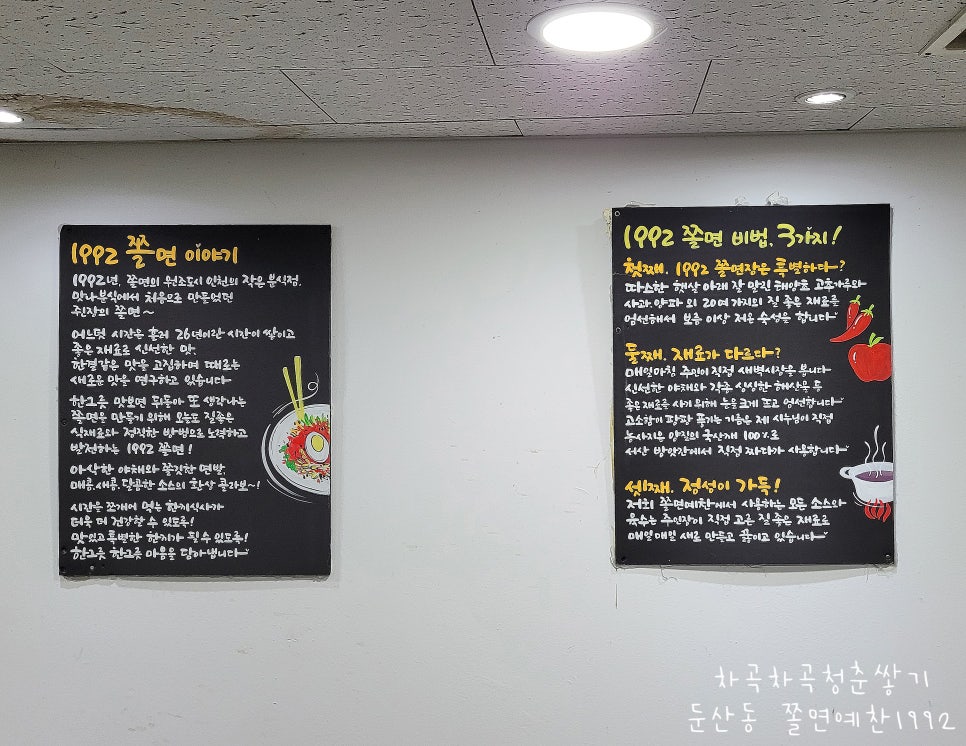 1992 쫄면 이야기
1992년, 쫄면의 원조도시 인천의 작은 분식점,
맛나분식에서 처음으로 만들었던
주인장의 쫄면~
어느덧 시간은 흘러 26년이란 시간이 쌓이고
좋은 재료로 신선한 맛,
한결같은 맛을 고집하며 때로는
새로운 맛을 연구하고 있습니다
한그릇 맛보면 뒤돌아 또 생각나는
쫄면을 만들기 위해 오늘도 질좋은
식재료와 정직한 방법으로 노력하고
발전하는 1992 쫄면!
아삭한 야채와 쫄깃한 면발,
매콤, 새콤, 달콤한 소스의 환상 콜라보~!
시간을 쪼개어 먹는 한끼식사가
더욱 더 건강할 수 있도록!
맛있고 특별한 한끼가 될 수 있도록!
한그릇 한그릇 마음을 담아냅니다
1992 쫄면 비법, 3가지!
첫째. 1992 쫄면장은 특별하다?
따스한 햇살 아래 잘 말린 태양초 고춧가루와
사과, 양파 외 20여가지의 질 좋은 재료를
엄선해서 보름 이상 저온 숙성을 합니다
둘째. 재료가 다르다?
매일아침 주인이 직접 새벽시장을 봅니다
신선한 야채와 각종 싱싱한 해산물 등
좋은재료를 사기 위해 눈을 크게 뜨고 엄선합니다
고소함이 팡팡 풍기는 기름은 제 시누님이 직접
농사지은 양질의 국산깨 100%로
서산 방앗간에서 직접 짜다가 사용합니다
셋째. 정성이 가득!
저희 쫄면예찬에서 사용하는 모든 소스와
육수는 주인장이 직접 고른 질 좋은 재료로
매일매일 새로 만들고 끓이고 있습니다
차곡차곡청춘쌓기
둔산동 쫄면예찬1992